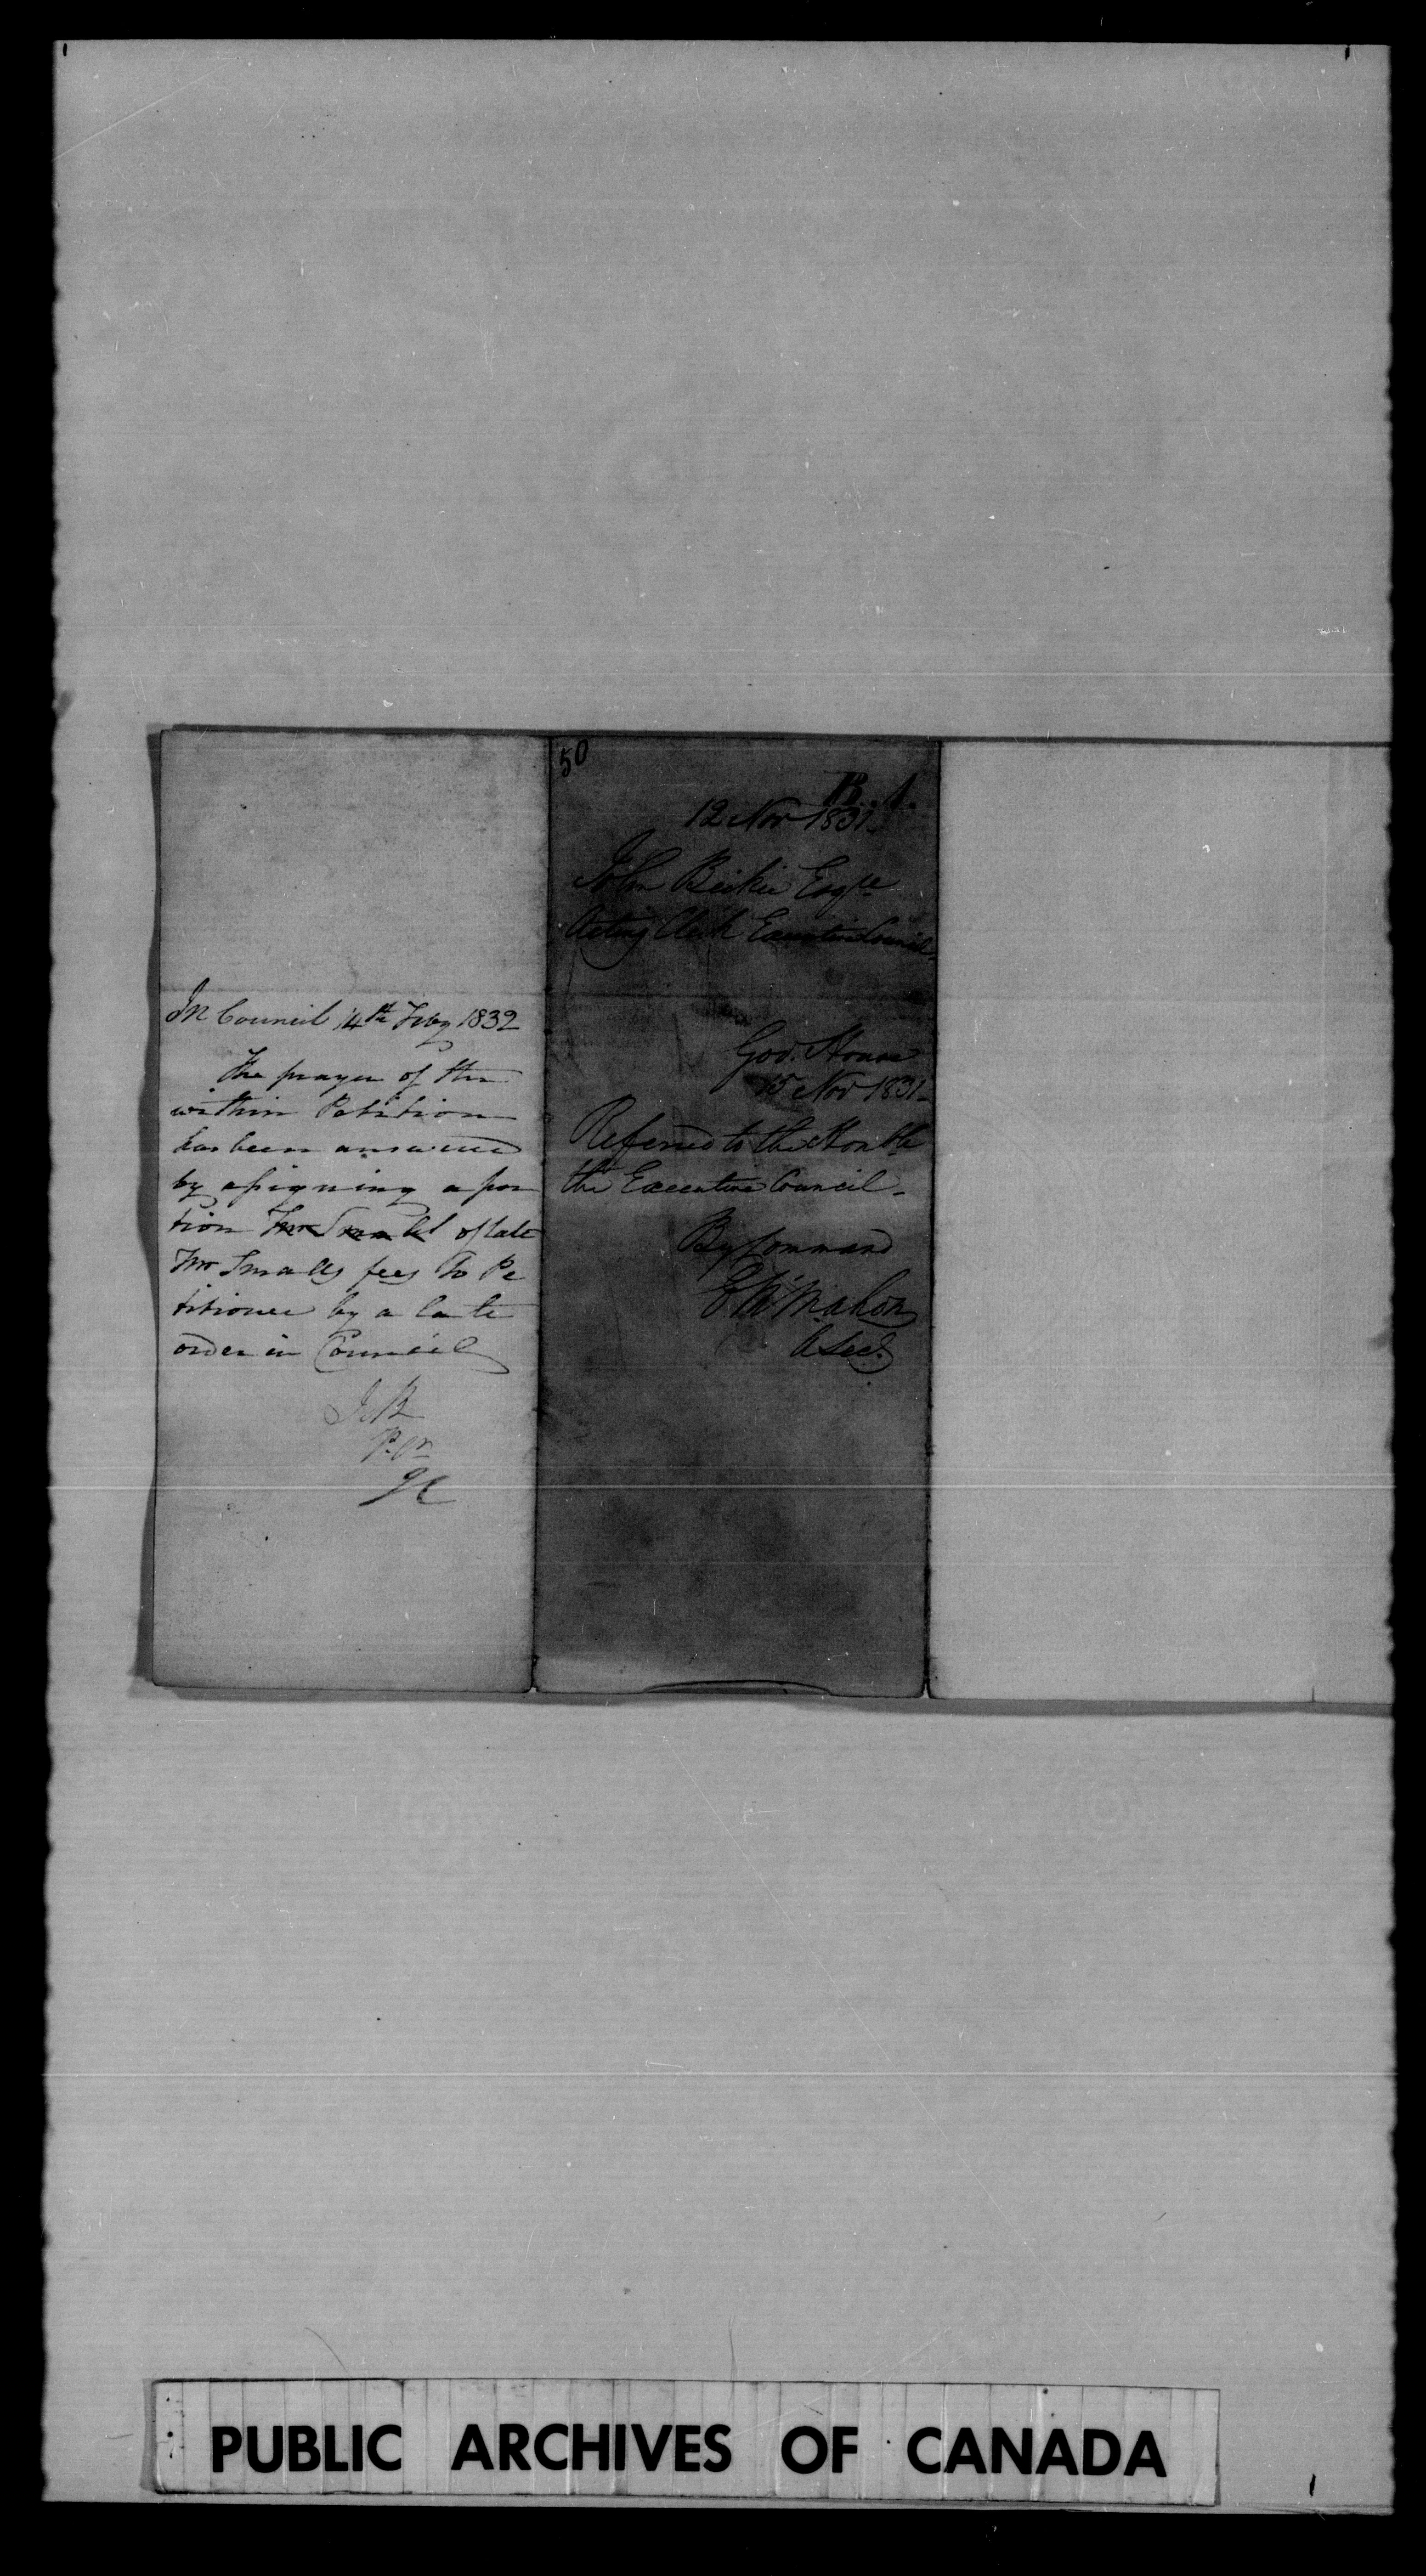 In Council 14th Feby 1832
The prayer of the
within Petition
has been answered
by assigning a por
tion Mr Small of late
Mr Smalls fees to Pe
titioner by a late
order in Council
J.B
P.R
50
B. 1.
12 Nov 1831
John Beikie Esqre
Acting Clerk Executive Council.
Gov. House
15 Nov 1831
Referred to the Honble
the Executive Council.
By Command
E McMahon
A Sec.
PUBLIC ARCHIVES OF CANADA